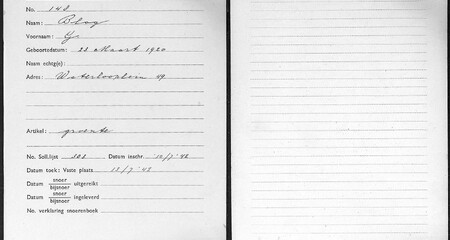 No. 148
Naam: Blog
Voornaam: G.
Geboortedatum: 23 Maart 1920
Naam echtg(e):
Adres: Waterlooplein 49
Artikel: groente
No. Soll.lijst 303 Datum inschr. 10/7 '42
Datum toek: Vaste plaats 13/7 '42
Datum snoer bijsnoer uitgereikt
Datum snoer bijsnoer ingeleverd
No. verklaring snoerenboek